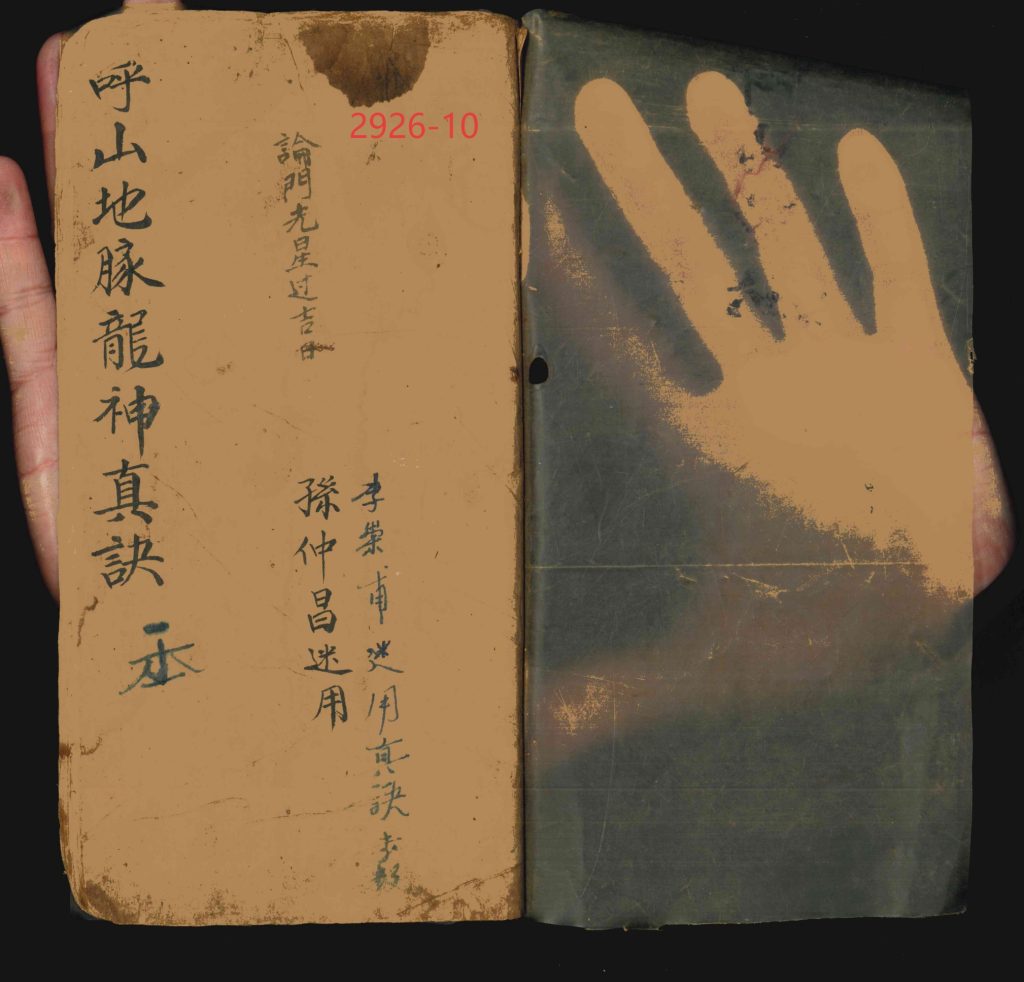 2926-10
李榮甫迷用真訣
孫仲昌迷用
論門光星过吉日
呼山地脉龍神真訣